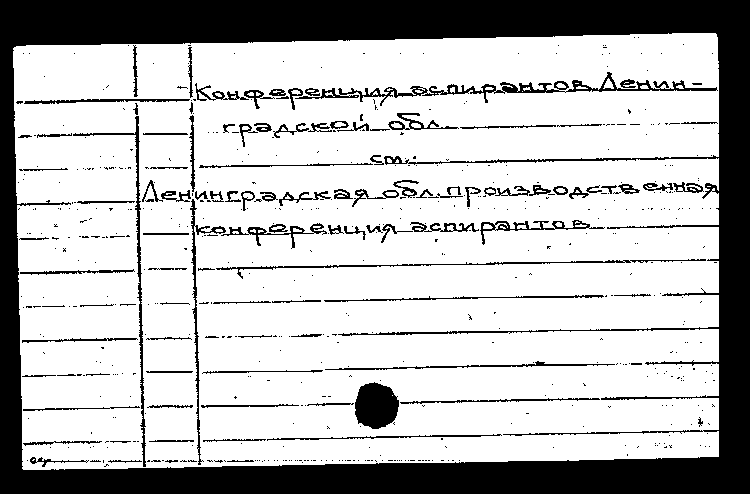 Конференция аспирантов Ленин-
градской обл.
см.:
Ленинградская обл. производственная
конференция аспирантов